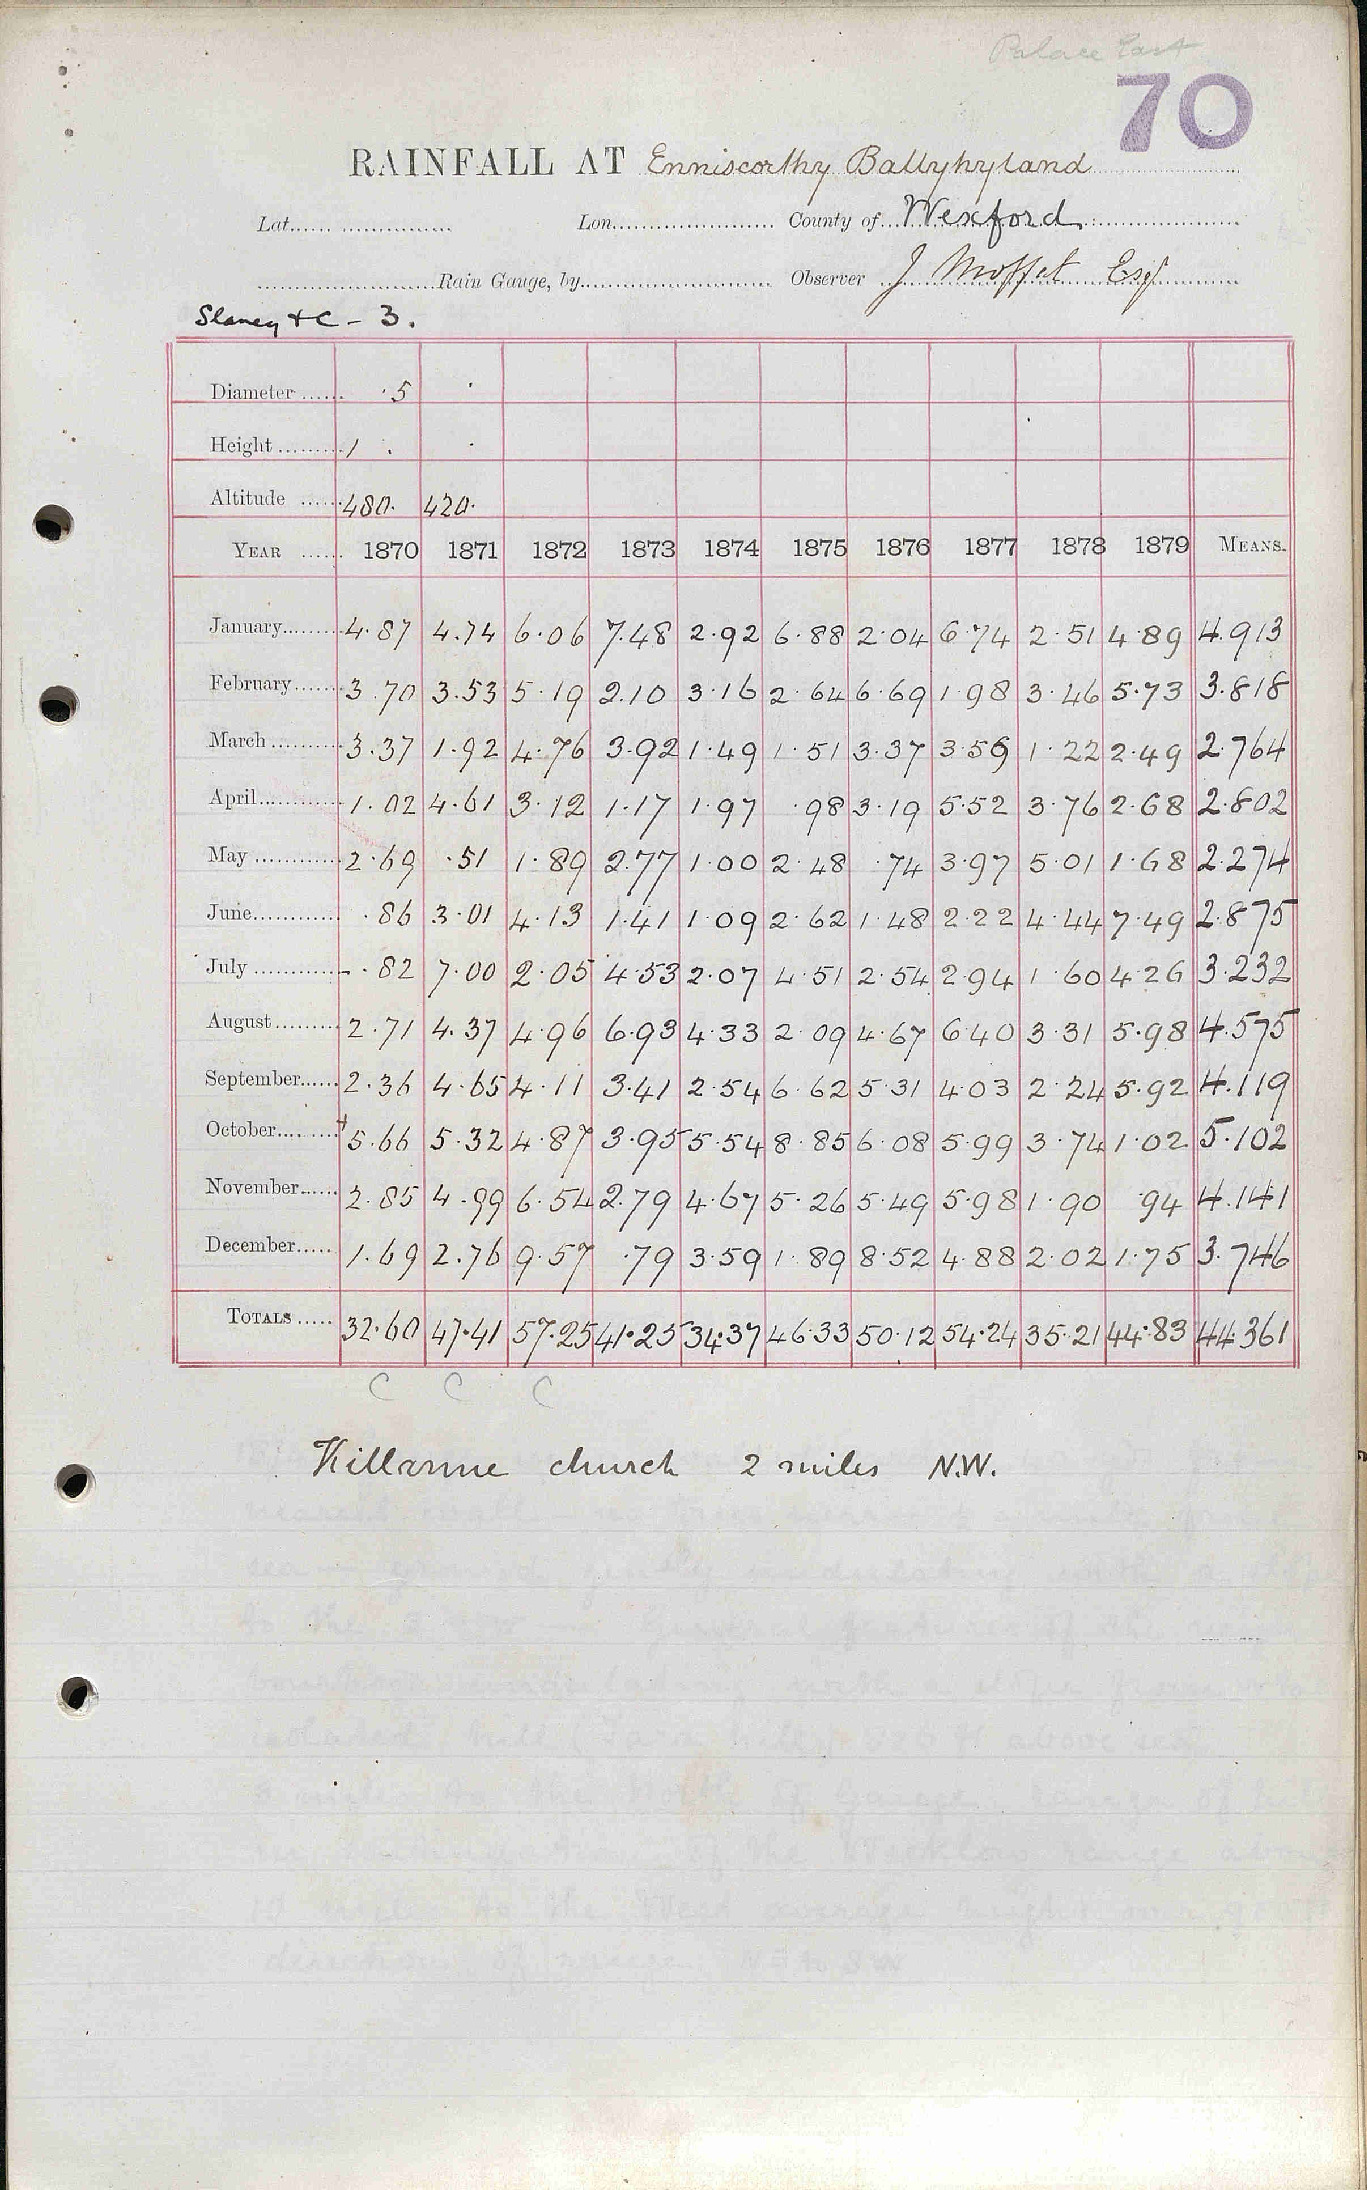 Palace East
70
RAINFALL AT Enniscorthy Ballyhyland
Lat. Lon. County of Wexford
Rain Gauge, by Observer J Moffet Esqr
Slaney + C - 3.
Diameter 5
Height 1
Altitude 480. 420.
YEAR 1870 1871 1872 1873 1874 1875 1876 1877 1878 1879 MEANS.
January 4.87 4.74 6.06 7.48 2.92 6.88 2.04 6.74 2.51 4.89 4.913
February 3.70 3.53 5.19 2.10 3.16 2.64 6.69 1.98 3.46 5.73 3.818
March 3.37 1.92 4.76 3.92 1.49 1.51 3.37 3.59 1.22 2.49 2.764
April 1.02 4.61 3.12 1.17 1.97 .98 3.19 5.52 3.76 2.68 2.802
May 2.69 .51 1.89 2.77 1.00 2.48 .74 3.97 5.01 1.68 2.274
June .86 3.01 4.13 1.41 1.09 2.62 1.48 2.22 4.44 7.49 2.875
July .82 7.00 2.05 4.53 2.07 4.51 2.54 2.94 1.60 4.26 3.232
August 2.71 4.37 4.96 6.93 4.33 2.09 4.67 6.40 3.31 5.98 4.575
September 2.36 4.65 4.11 3.41 2.54 6.62 5.31 4.03 2.24 5.92 4.119
October + 5.66 5.32 4.87 3.95 5.54 8.85 6.08 5.99 3.74 1.02 5.102
November 2.85 4.99 6.54 2.79 4.67 5.26 5.49 5.98 1.90 .94 4.141
December 1.69 2.76 9.57 .79 3.59 1.89 8.52 4.88 2.02 1.75 3.746
TOTALS 32.60 47.41 57.25 41.25 34.37 46.33 50.12 54.24 35.21 44.83 44.361
C C C
Killanne church 2 miles N.W.